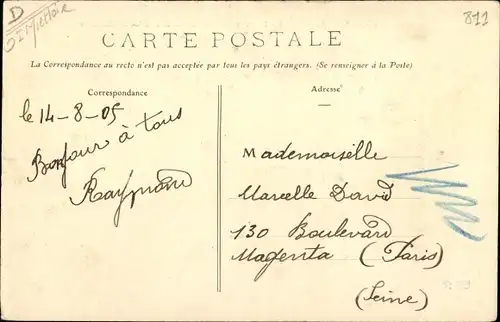 D
811
CARTE POSTALE
La Correspondance au recto n'est pas acceptée par tous les pays étrangers. (Se renseigner à la Poste)
Correspondance
le 14-8-05
Bonjour à tous
Raymond
Adresse
Mademoiselle
Marcelle David
130 Boulevard
Magenta (Paris)
(Seine)